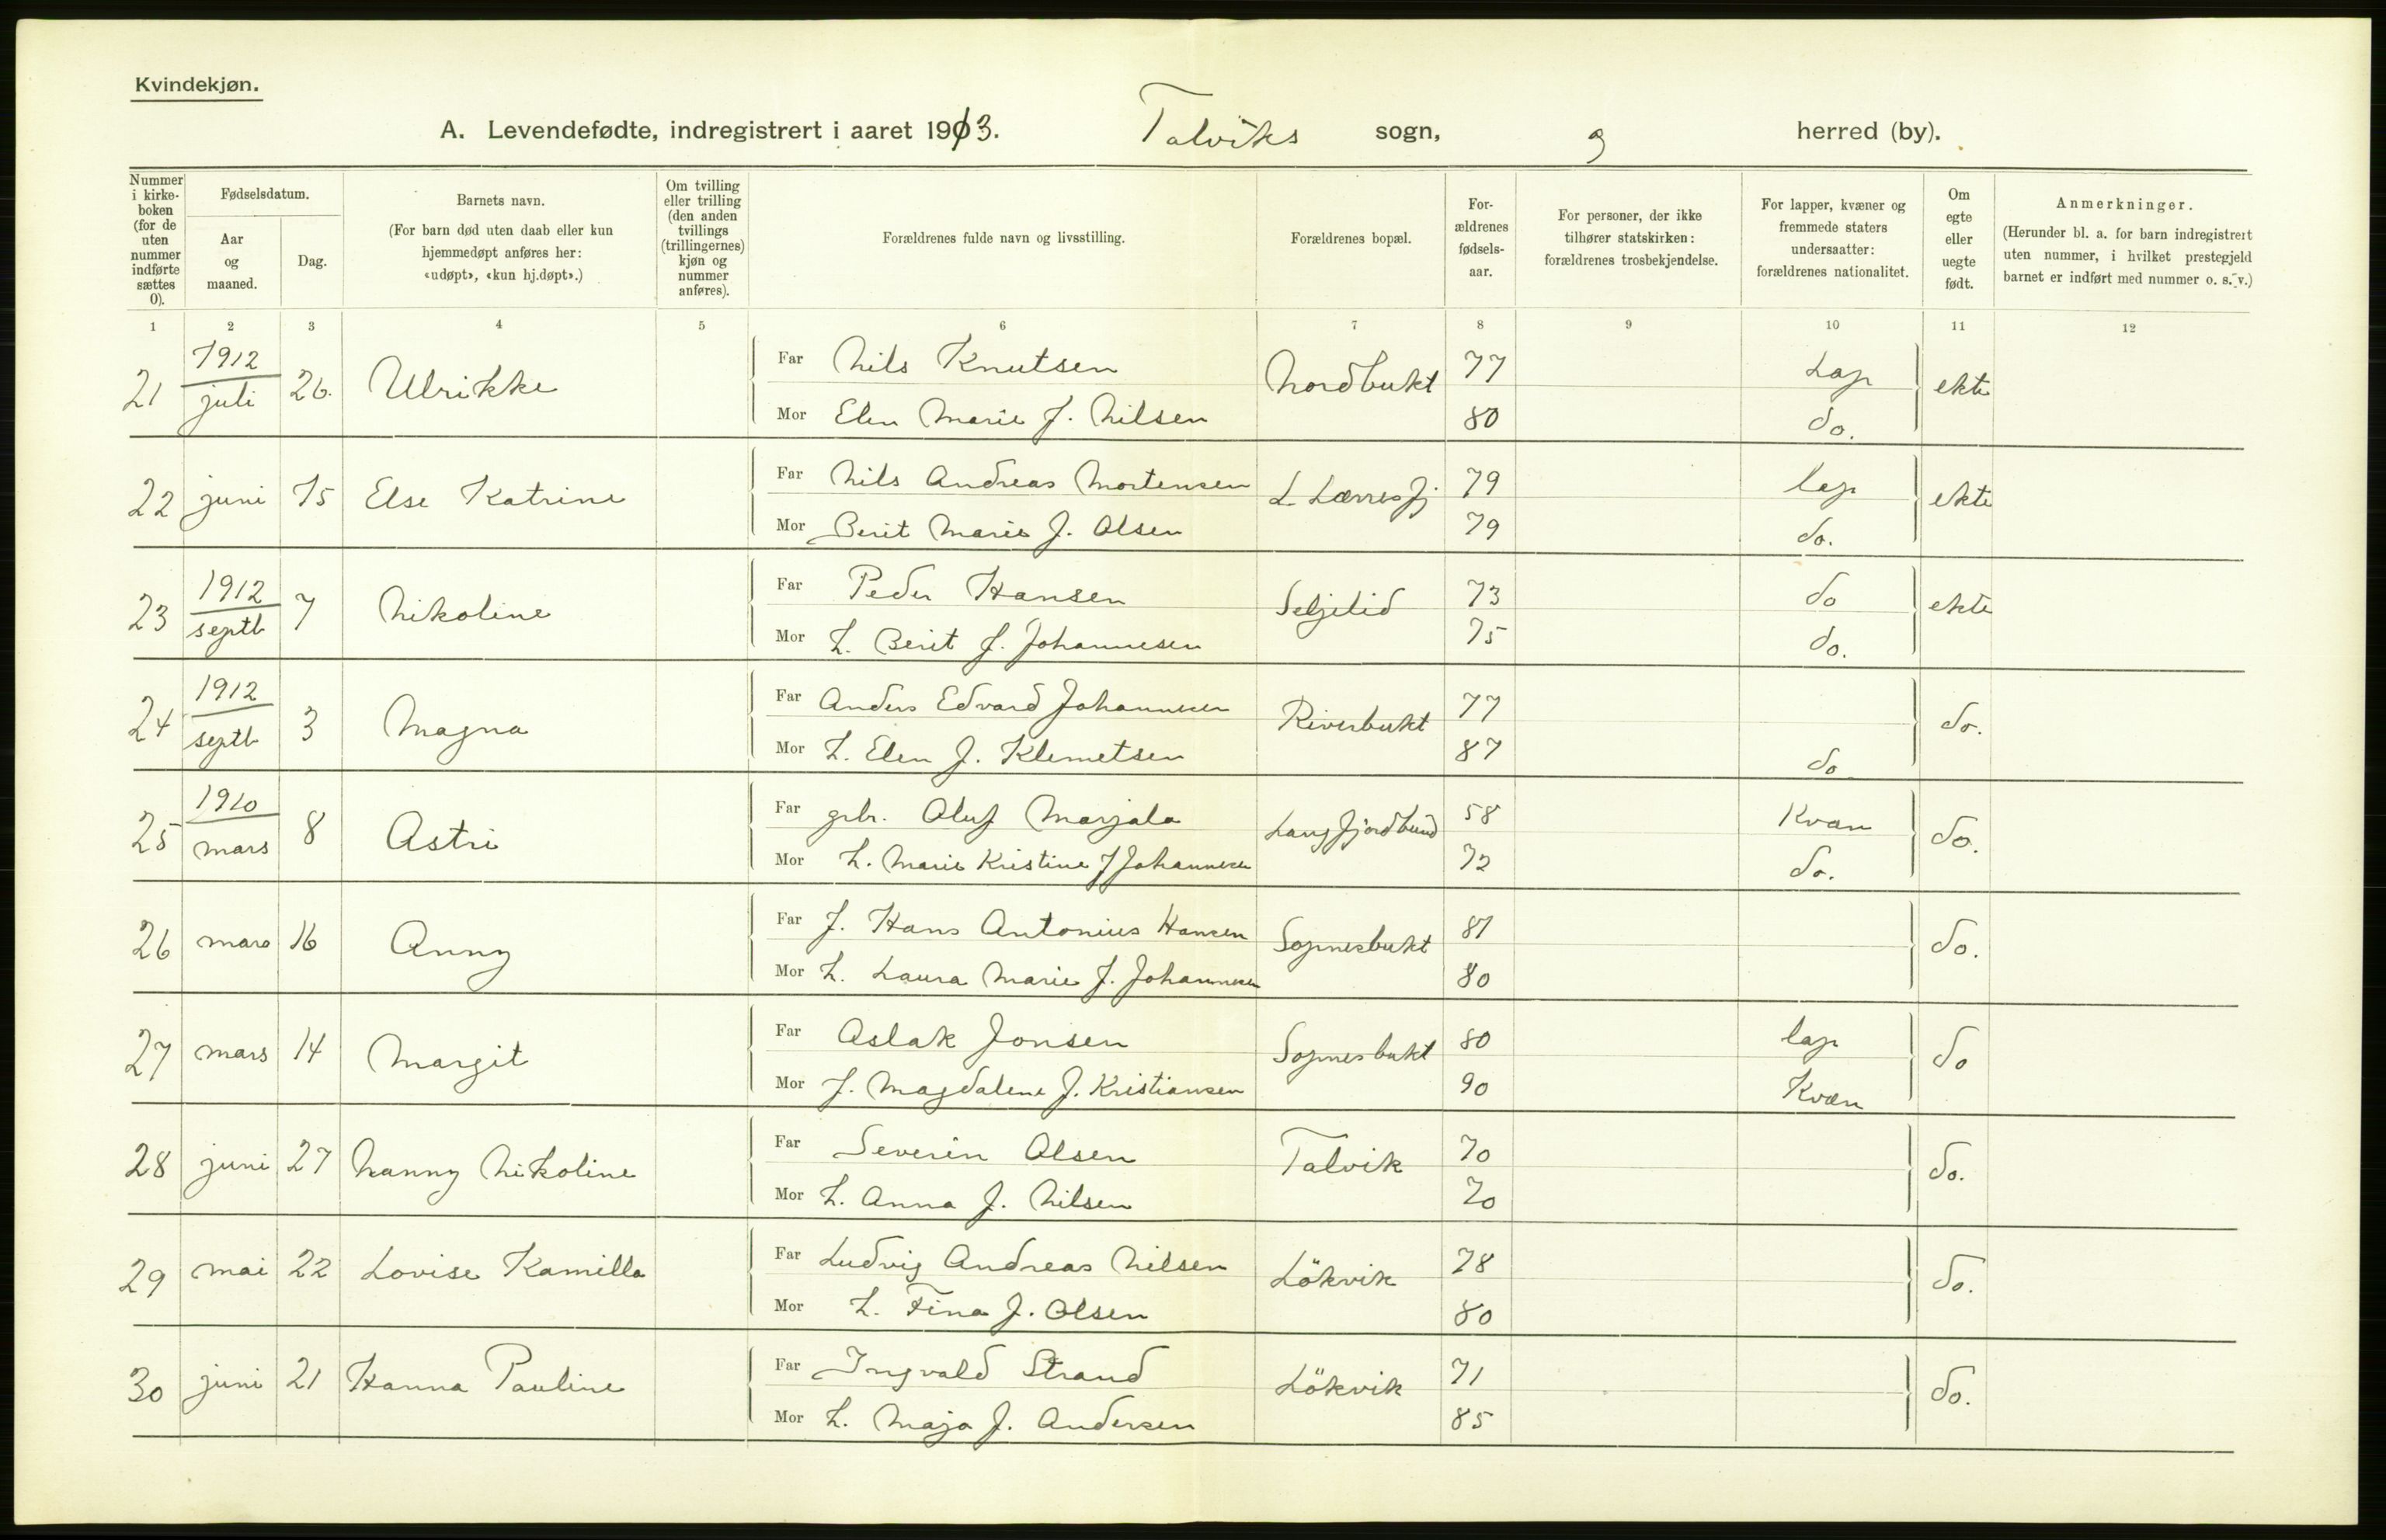 Kvindekjøn.
A. Levendefødte, indregistrert i aaret 1913. Talviks sogn, herred (by).
Nummer i kirkeboken (for de uten nummer indførte sættes 0).
Fødselsdatum.
Aar og maaned.
Dag.
Barnets navn.
(For barn død uten daab eller kun hjemmedøpt anføres her: «udøpt», «kun hj.døpt».)
Om tvilling eller trilling (den anden tvillings (trillingernes) kjøn og nummer anføres).
Forældrenes fulde navn og livsstilling.
Forældrenes bopæl.
Forældrenes fødselsaar.
For personer, der ikke tilhører statskirken: forældrenes trosbekjendelse.
For lapper, kvæner og fremmede staters undersaatter: forældrenes nationalitet.
Om egte eller uegte født.
Anmerkninger.
(Herunder bl. a. for barn indregistrert uten nummer, i hvilket prestegjeld barnet er indført med nummer o. s. v.)
1 2 3 4 5 6 7 8 9 10 11 12
21 1912 juli 26. Ulrikke Far Nils Knutsen Nordbukt 77 Lap ekte
Mor Elen Marie J. Nilsen 80 do.
22 juni 15 Else Katrine Far Nils Andreas Mortensen L. Lærresfj 79 lap ekte
Mor Berit Marie J. Olsen 79 do.
23 1912 septb 7 Nikoline Far Peder Hansen Seljelid 73 do ekte
Mor L. Berit J. Johannesen 75 do.
24 1912 septb 3 Magna Far Anders Edvard Johannesen Riverbukt 77 do.
Mor L. Elen J. Klemetsen 87 do
25 1910 mars 8 Astri Far gbr. Oluf Marjala Langfjordbund 58 Kvæn do.
Mor L. Marie Kristine J Johannesen 72 do.
26 mars 16 Anny Far J. Hans Antonius Hansen Sopnesbukt 81 do.
Mor L. Laura Marie J. Johannesen 80
27 mars 14 Margit Far Aslak Jonsen Sopnesbukt 80 lap do
Mor J. Magdalene J. Kristiansen 90 Kvæn
28 juni 27 Nanny Nikoline Far Severin Olsen Talvik 70 do.
Mor L. Anna J. Nilsen 70
29 mai 22 Lovise Kamilla Far Ludvig Andreas Nilsen Lökvik 78 do.
Mor L. Fina J. Olsen 80
30 juni 21 Hanna Pauline Far Ingvald Strand Lökvik 71 do.
Mor L. Maja J. Andersen 85